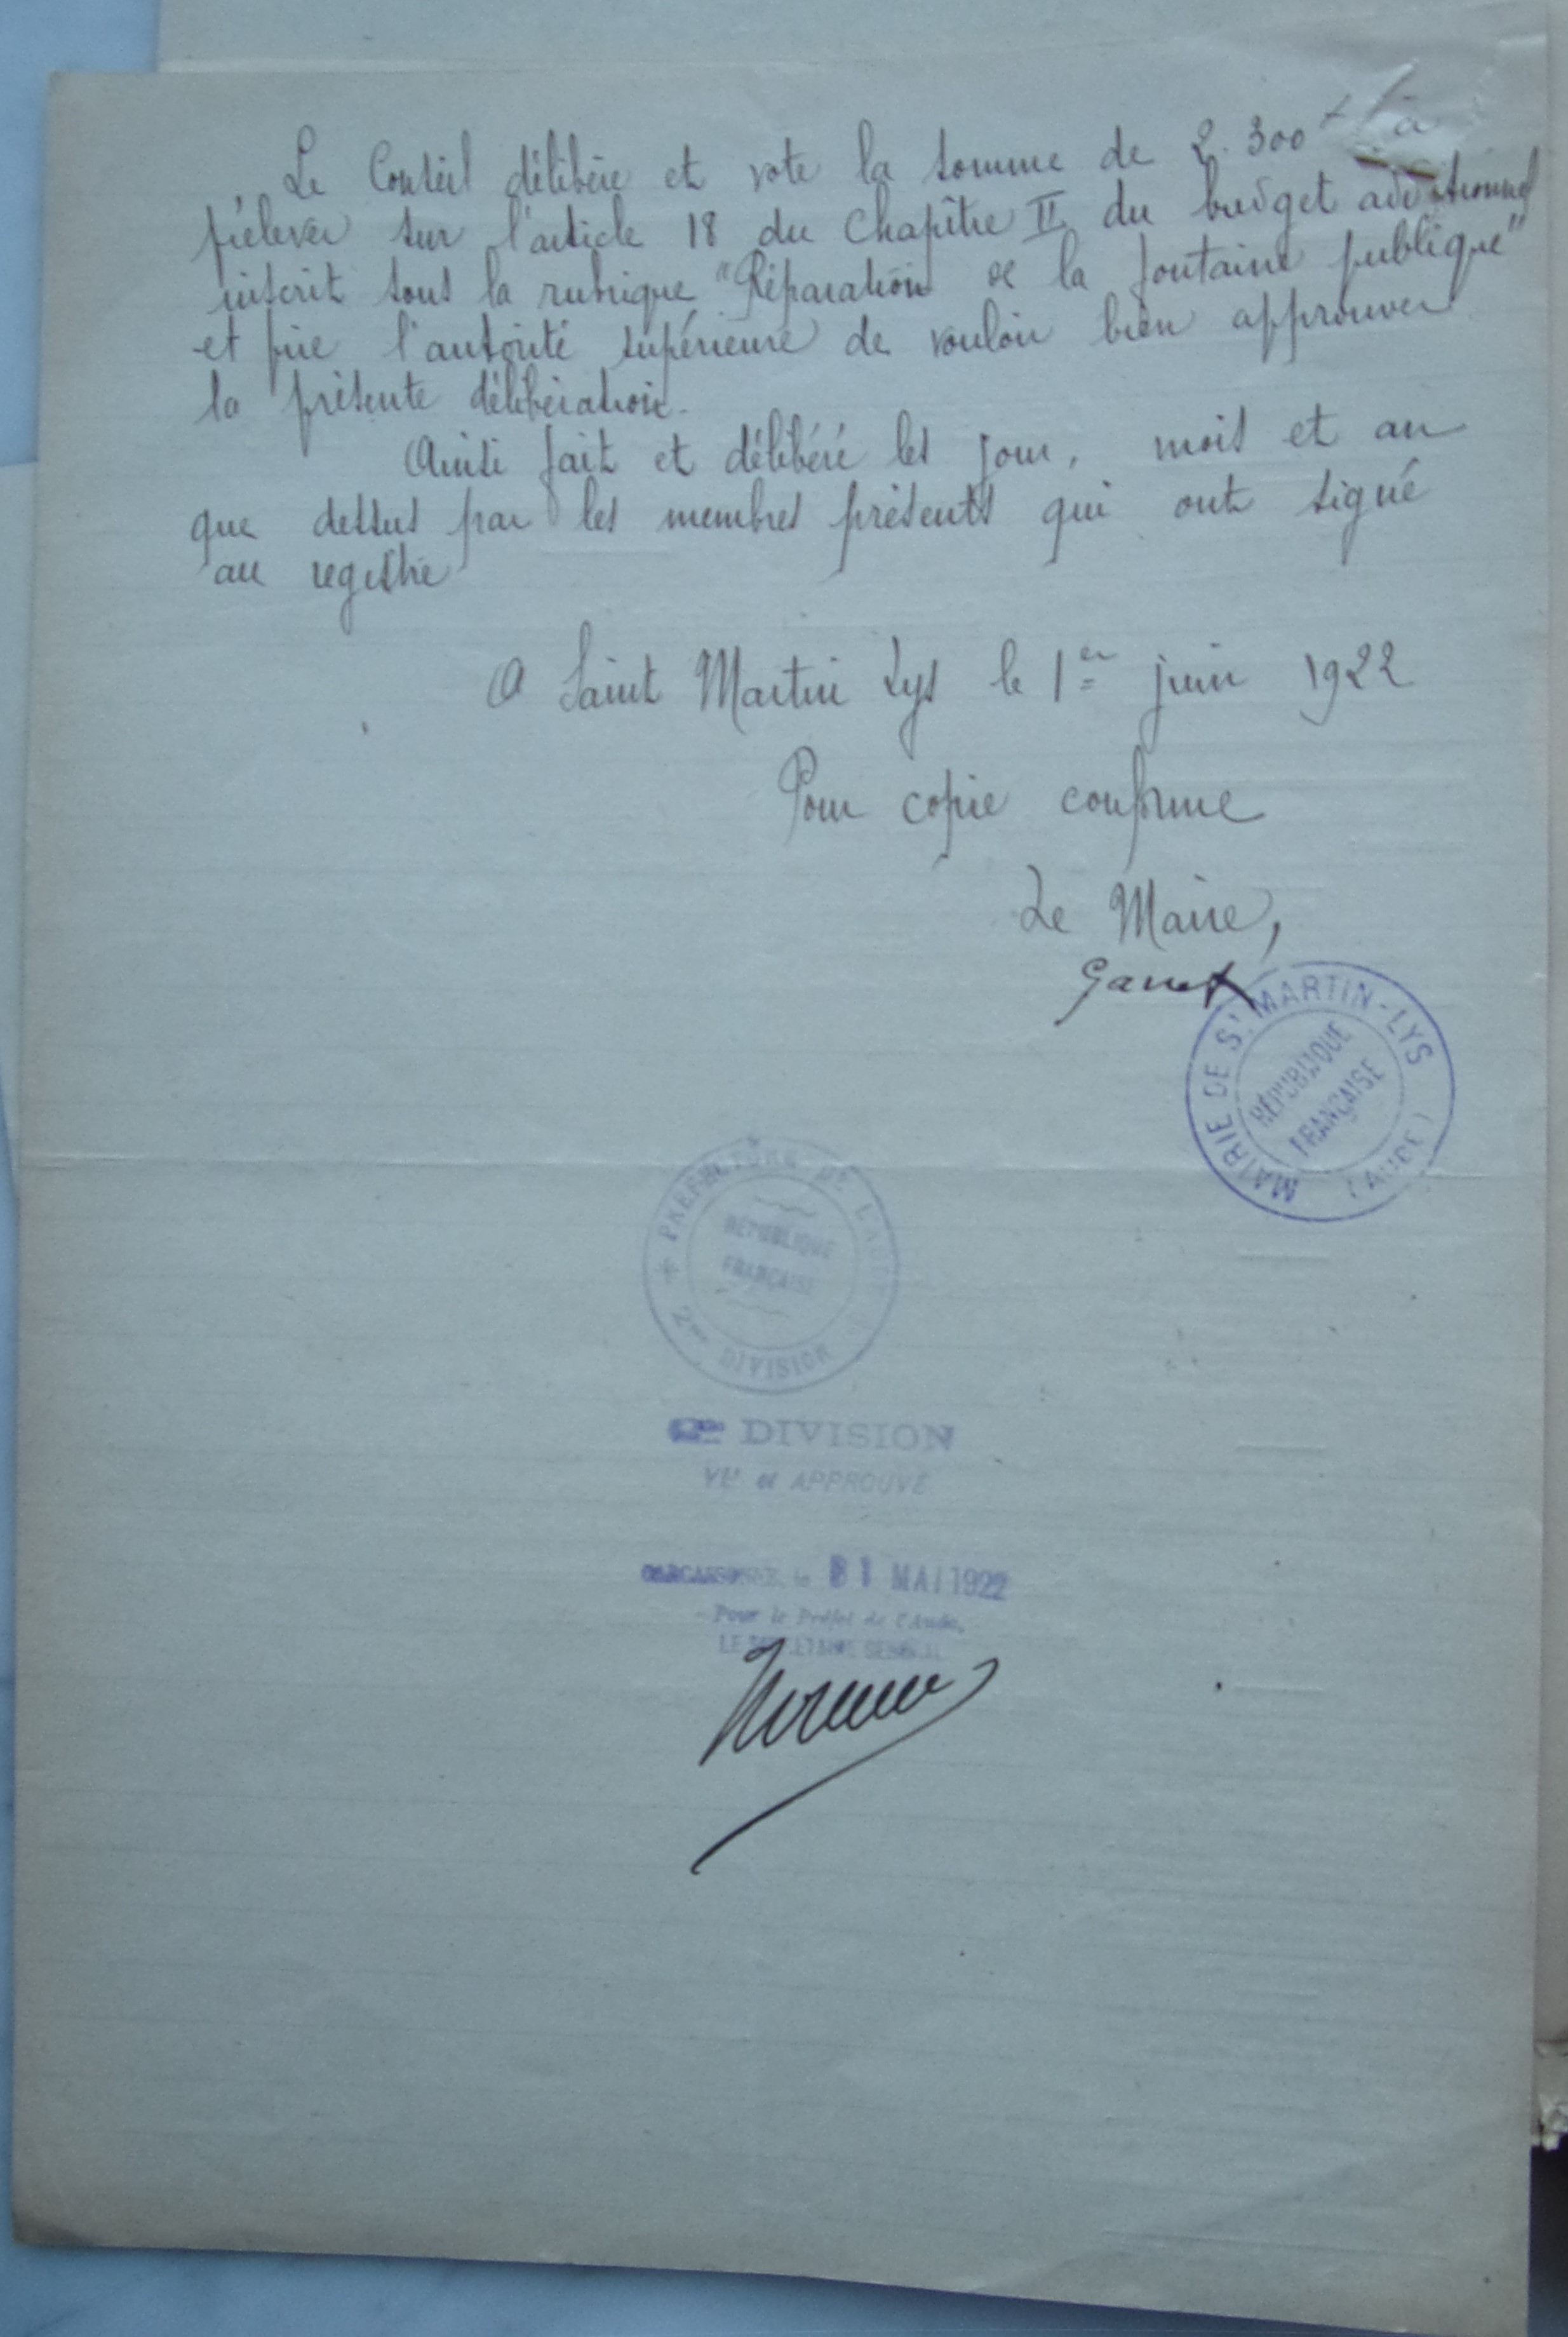 Le Conseil délibère et vote la somme de 2.300 f à
prélever sur l'article 18 du Chapitre II du budget additionnel
inscrit sous la rubrique "Réparation de la fontaine publique"
et prie l'autorité supérieure de vouloir bien approuver
la présente délibération.
Ainsi fait et délibéré les jour, mois et an
que dessus par les membres présents qui ont signé
au registre
A Saint Martin Lys le 1er juin 1922
Pour copie conforme
Le Maire,
MAIRIE DE St MARTIN-LYS
(AUDE)
RÉPUBLIQUE
FRANÇAISE
PRÉFECTURE DE L'AUDE
2me DIVISION
RÉPUBLIQUE
FRANÇAISE
2me DIVISION
VU et APPROUVÉ
CARCASSONNE, le 31 MAI 1922
Pour le Préfet de l'Aude,
LE SECRÉTAIRE GÉNÉRAL